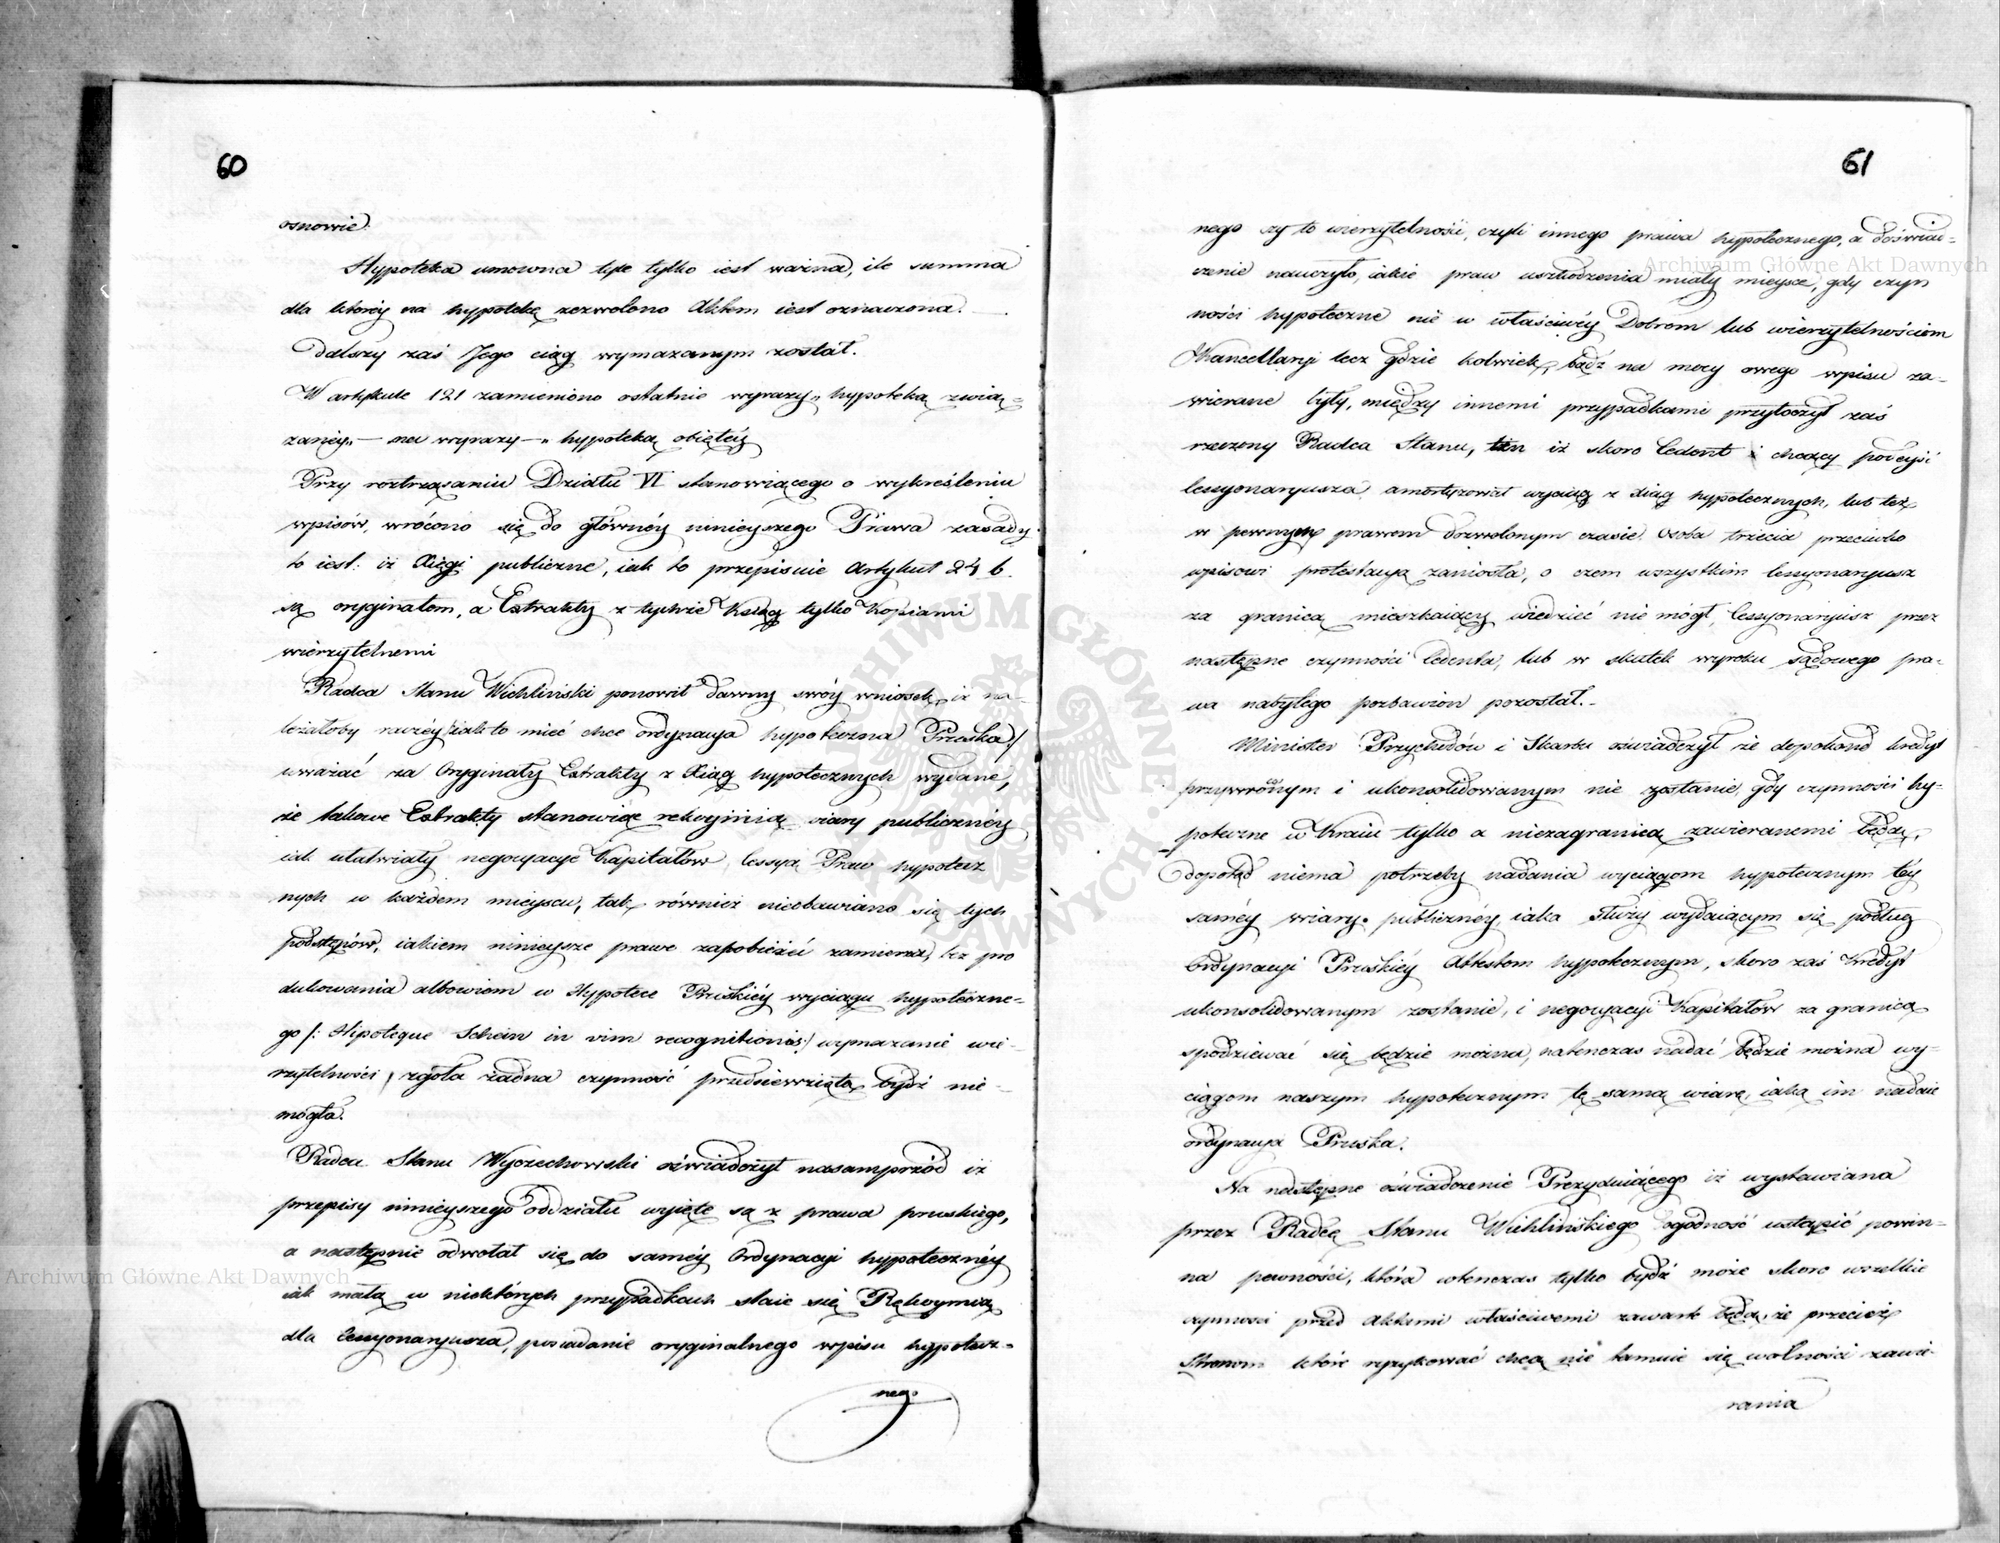 60
osnowie.
Hypoteka umowna tyle tylko iest ważna, ile summa
dla któréy na hypotekę zezwolono Aktem iest oznaczona.
Dalszy zaś Jego ciąg wymazanym został.
W artykule 121 zamieniono ostatnie wyrazy „hypoteką zwią-
zanéy" — na wyrazy — „hypoteką obiętéy
Przy roztrząsaniu Działu VI stanowiącego o wykreśleniu
wpisów, wrócono się do głównéy ninieyszego Prawa zasady
to iest: iż Xięgi publiczne, iak to przepisuie Artykuł 24 b.
są oryginałem, a Extrakty z tychże Ksiąg tylko Kopiami
wierzytelnemi
Radca Stanu Wichliński ponowił dawny swóy wniosek, iż na-
leżałoby raczéy /:iak to mieć chce ordynacya hypoteczna Pruska:/
uważać za Oryginały Extrakty z Xiąg hypotecznych wydane,
że takowe Extrakty stanowiąc rękoymią wiary publicznéy
iak ułatwiały negocyacye Kapitałów, Cessyą Praw hypotecz
nych w każdem mieyscu, tak również nieobawiano się tych
podstępów, iakiem ninieysze prawo zapobieżeć zamierza, bez pro
dukowania albowiem w Hypotece Pruskiéy wyciągu hypoteczne-
go /: Hipoteque Schein in vim recognitionis:/ wymazanie wie-
rzytelności, zgoła żadna czynność przedsięwziętą bydź nie-
mogła.
Radca Stanu Wyczechowski oświadczył nasamprzód iż
przepisy ninieyszego oddziału wyięte są z prawa pruskiego,
a następnie odwołał się do saméy Ordynacyi hypotecznéy
iak małą w niektórych przypadkach staie się Rękoymią
dla Cessyonaryusza, posiadanie oryginalnego wpisu hypotecz-
nego
61
nego czy to wierzytelności, czyli innego prawa hypotecznego, a doświad-
czenie nauczyło, iakie praw uszkodzenia miały mieysce, gdy czyn
ności hypoteczne nie w właściwéy Dobrom lub wierzytelnościom
Kancellaryi lecz gdzie kolwiek, bądź na mocy owego wpisu za-
wierane były, między innemi przypadkami przytoczył zaś
rzeczony Radca Stanu, ten iż skoro Cedent chcący podeyść
Cessyonaryusza amortyzował wyciąg z xiąg hypotecznych, lub też
w pewnym prawem dozwolonym czasie Osoba trzecia przeciwko
wpisowi protestacyą zaniosła, o czem wszystkim Cessyonaryusz
za granicą mieszkaiący wiedzieć nie mógł, Cessyonaryusz przez
następne czynności Cedenta, lub w skutek wyroku sądowego pra-
wa nabytego pozbawion pozostał.
Minister Przychodów i Skarbu oświadczył że dopokąd kredyt
przywróconym i ukonsolidowanym nie zostanie, gdy czynności hy-
poteczne w Kraiu tylko a niezagranicą zawieranemi będą,
dopotąd niema potrzeby nadania wyciągom hypotecznym téy
saméy wiary publicznéy iaka służy wydaiącym się podług
Ordynacyi Pruskiéy Attestom hypotecznym, skoro zaś Kredyt
ukonsolidowanym zostanie, i negocyacyi Kapitałów za granicą
spodziewać się będzie można, natenczas nadać będzie można wy-
ciągom naszym hypotecznym tę samą wiarę, iaką im nadaie
ordynacya Pruska.
Na następne oświadczenie Prezyduiącego iż wystawiana
przez Radcę Stanu Wichlińskiego dogodność ustąpić powin-
na pewności, która wtenczas tylko bydź może skoro wszelkie
czynności przed Aktami właściwemi zawarte będą, że przecież
Stronom które ryzykować chcą nie tamuie się wolności zawie-
rania
Archiwum Główne Akt Dawnych
Archiwum Główne Akt Dawnych
ARCHIWUM GŁÓWNE AKT DAWNYCH